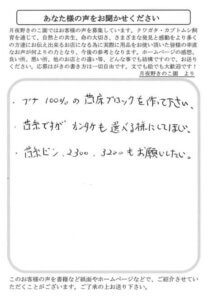 あなた様の声をお聞かせください
月夜野きのこ園ではお客様の声を募集しています。クワガタ・カブトムシ飼
育を通じて、自然との共生、命の大切さ、さまざまな発見と感動をより多く
の方達にお伝え出来るお店になる為に実際に用品をお使い頂いたお客様の率直
なお声が何より力となり、今後の参考となります。ホームページの感想、
良い所、悪い所、他のお店との違い等、どんな事でも結構ですので、お送りく
ださい。応募はがきの書き方は一切自由です。文でも絵でも大歓迎です！
月夜野きのこ園 より
・ブナ100%の菌床ブロックを作って下さい。
・菌糸ですがカンタケも選べる様にしてほしい。
・菌糸ビン、2300、3200もお願いしたい。
このお客様の声を書籍など紙面やホームページなどで、ご紹介させてい
ただくことがございます。ご了承の上お送り下さい。